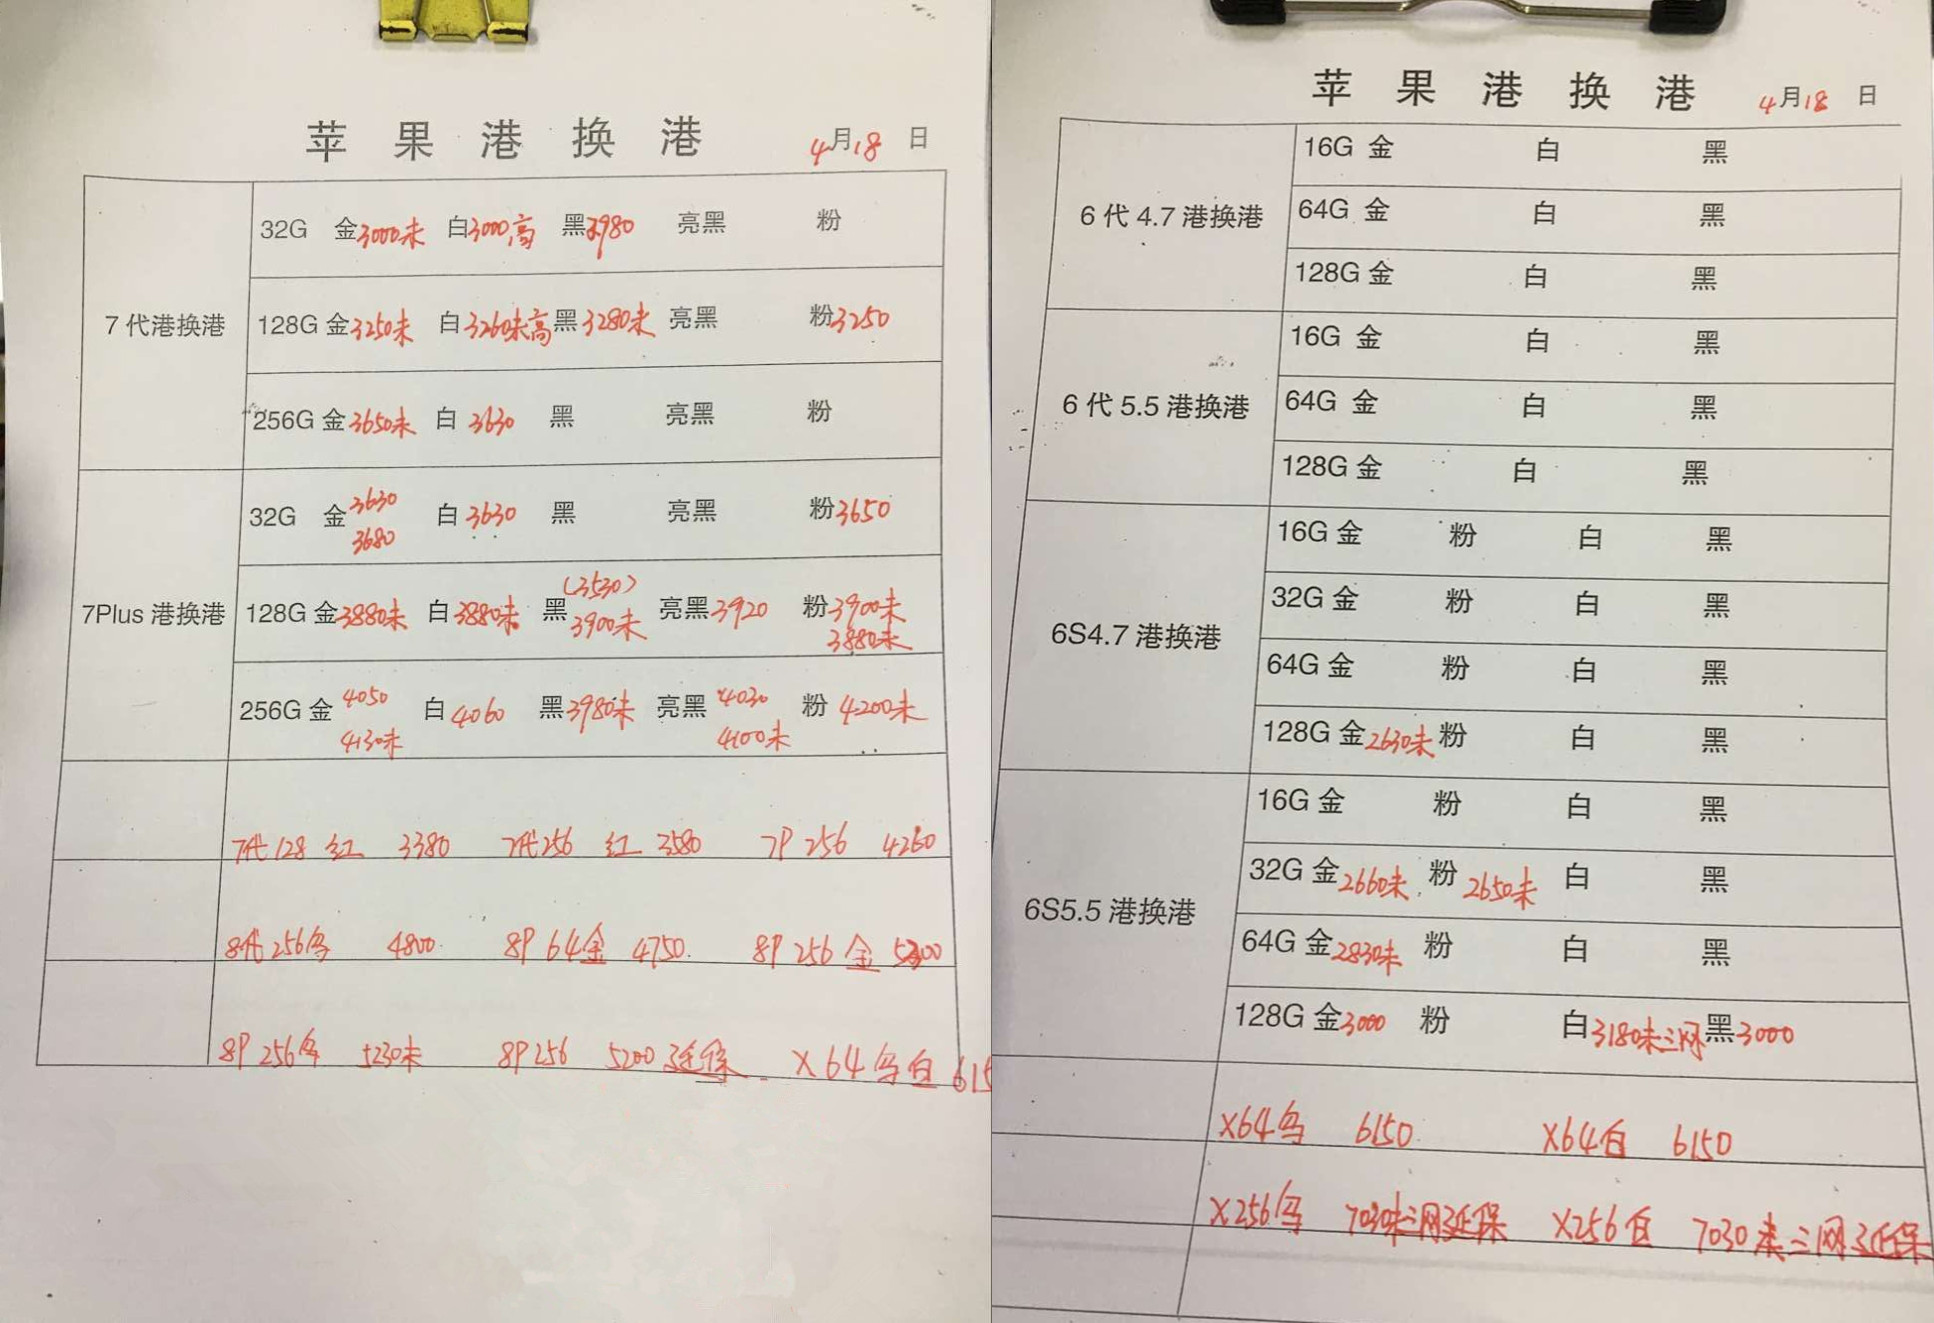 苹果港换港 4月18日
7代港换港
32G 金3000未 白3000高 黑2980 亮黑 粉
128G 金3250未 白3260未高 黑3280未 亮黑 粉3250
256G 金3650未 白3630 黑 亮黑 粉
7Plus港换港
32G 金3630 3680 白3630 黑 亮黑 粉3650
128G 金3880未 白3880未 黑(3530) 3900未 亮黑3920 粉3900未 3880未
256G 金4050 4130未 白4060 黑3980未 亮黑4030 4100未 粉4200未
7代128 红 3380 7代256 红 3580 7P 256 4260
8代256 4800 8P 64金 4750 8P 256 金
8P 256 5230未 8P 256 5200 延保 X 64 白 615
苹果港换港 4月18日
6代4.7港换港
16G 金 白 黑
64G 金 白 黑
128G 金 白 黑
6代5.5港换港
16G 金 白 黑
64G 金 白 黑
128G 金 白 黑
6S4.7港换港
16G 金 粉 白 黑
32G 金 粉 白 黑
64G 金 粉 白 黑
128G 金2630未 粉 白 黑
6S5.5港换港
16G 金 粉 白 黑
32G 金2660未 粉2650未 白 黑
64G 金2830未 粉 白 黑
128G 金3000 粉 白3180未三网 黑3000
X64 6150 X64白 6150
X256 7030未三网延保 X256白 7030未三网延保